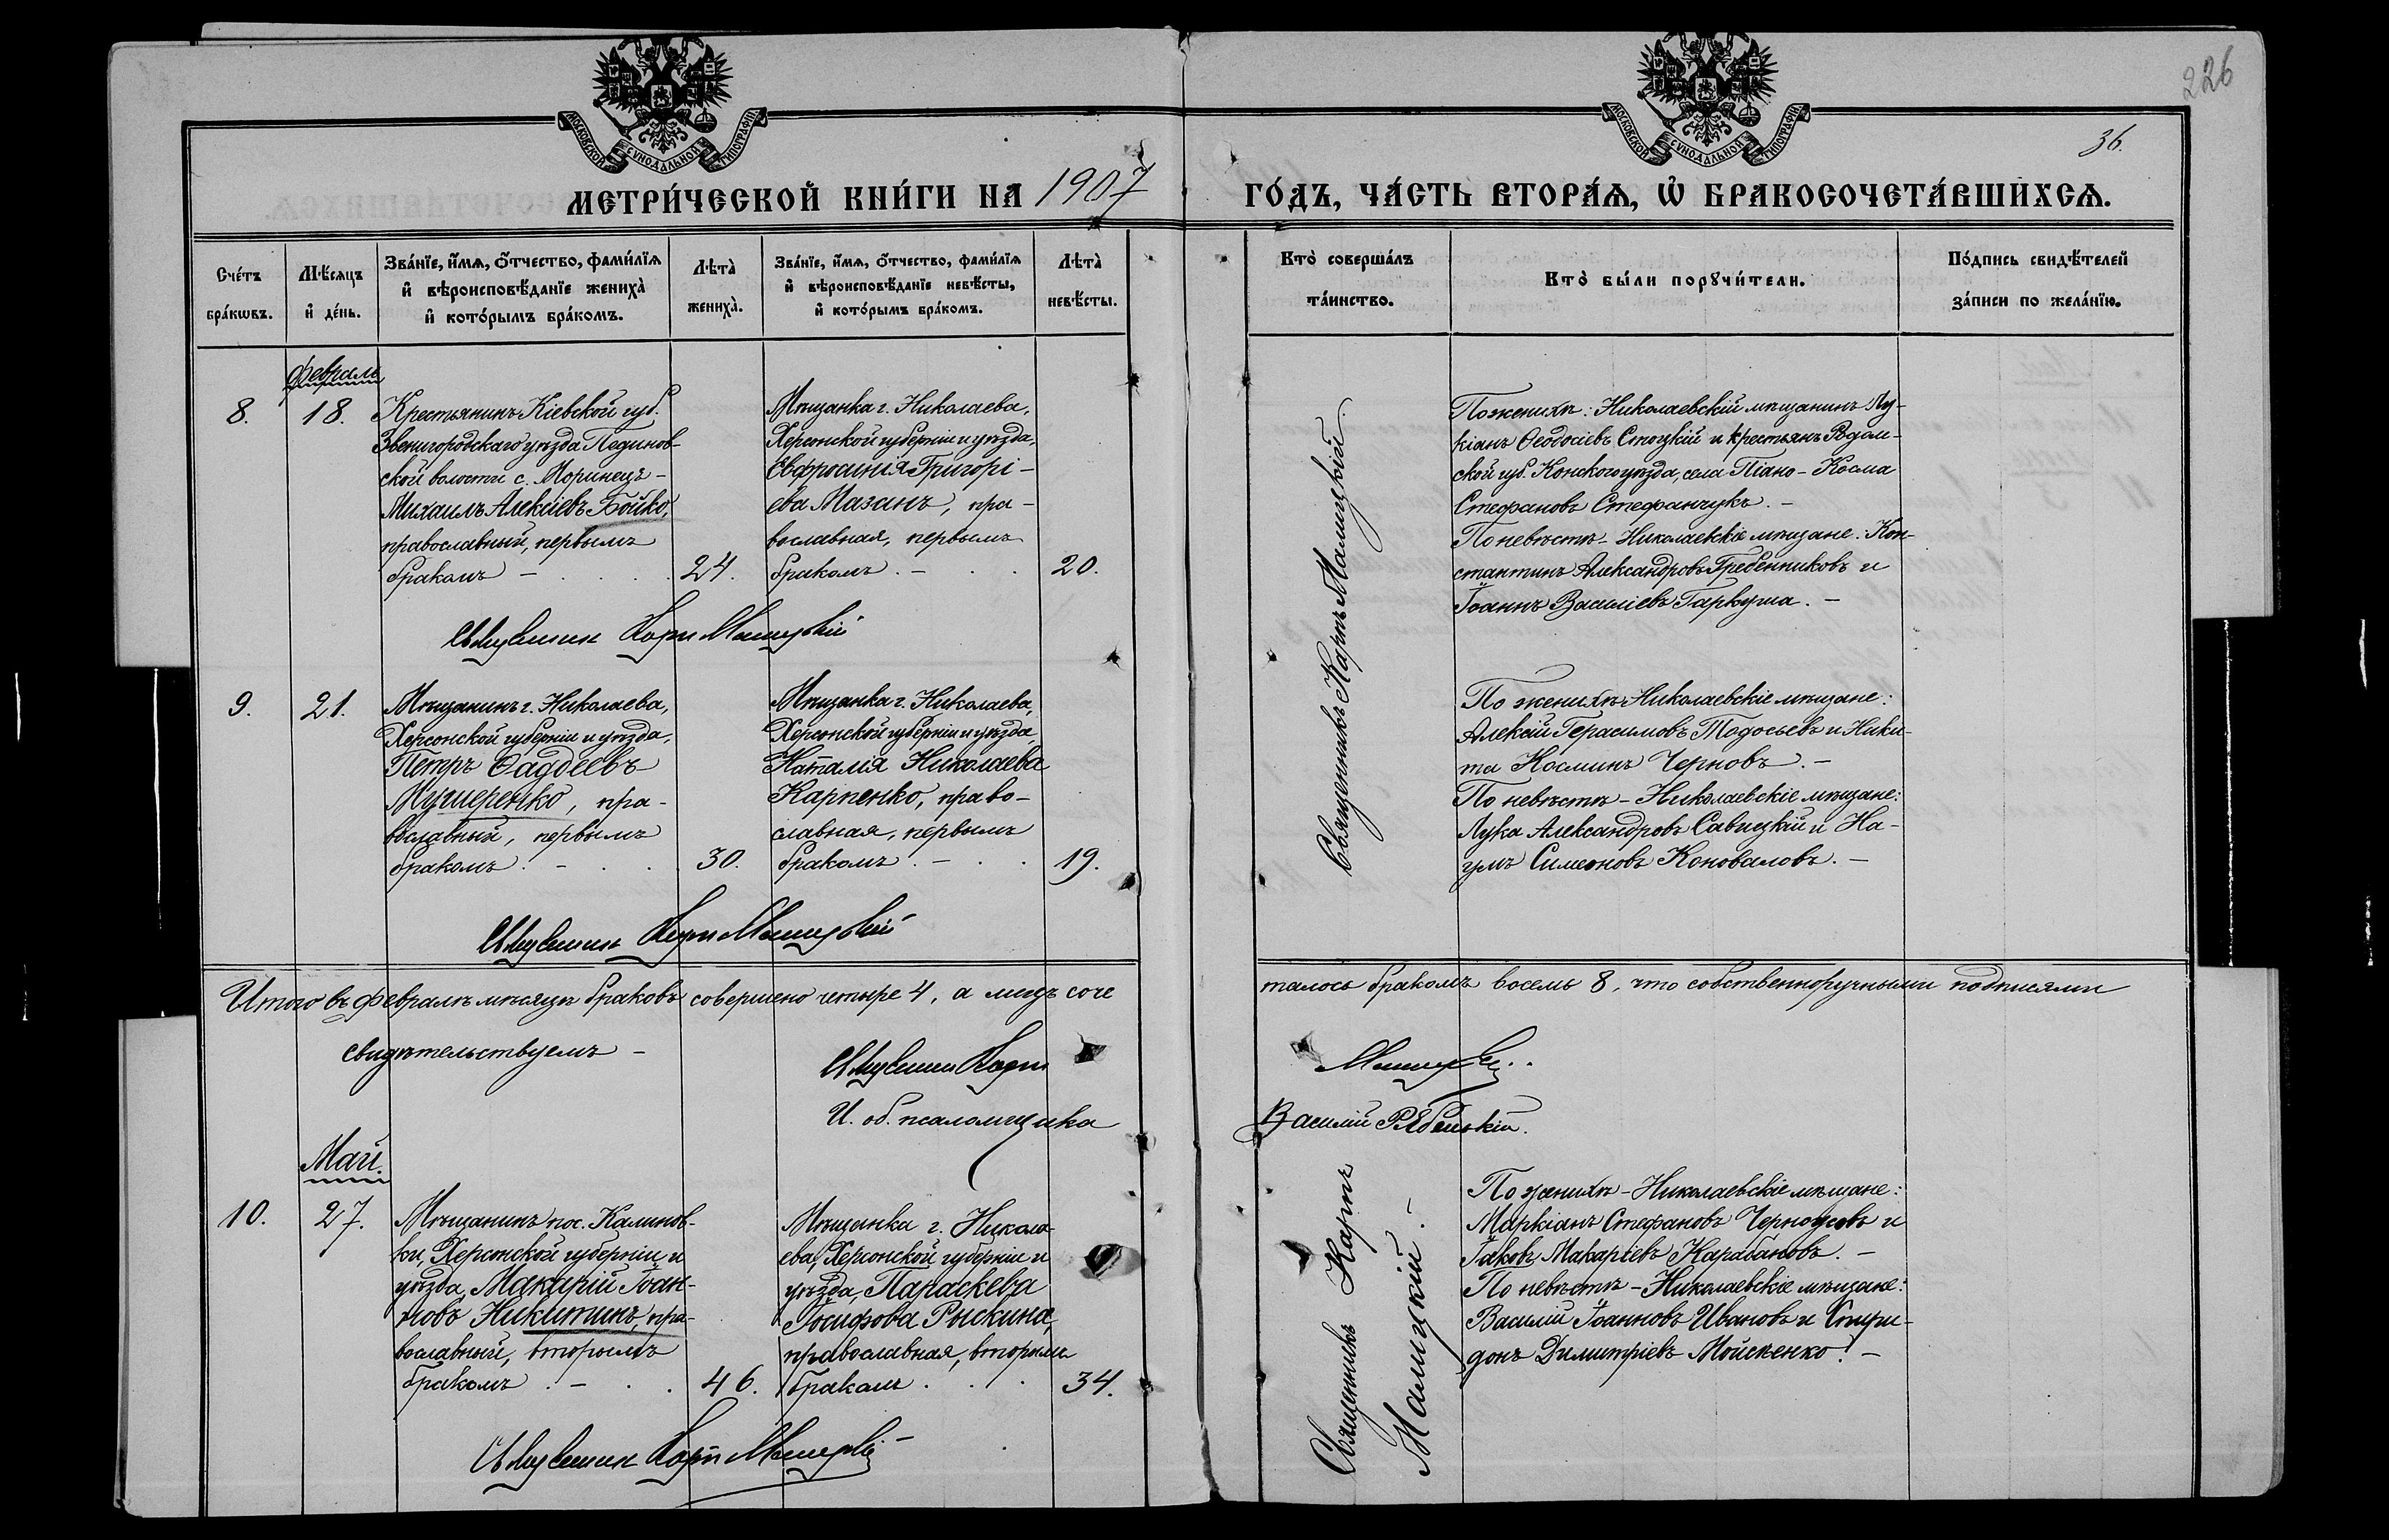 226
36.
МОСКОВСКОЙ СѴНОДАЛЬНОЙ ТИПОГРАФІИ
МОСКОВСКОЙ СѴНОДАЛЬНОЙ ТИПОГРАФІИ
МЕТРИ́ЧЕСКОЙ КНИ́ГИ НА 1907 ГО́ДЪ, ЧА́СТЬ ВТОРА́Ѧ, Ѡ҆ БРАКОСОЧЕТА́ВШИХСѦ.
Сче́тъ
бра́кѡвъ.
Мѣ́сяцъ
и҆ де́нь.
Зва́нїе, и҆́мѧ, ѻ҆́тчество, фами́лїѧ
и҆ вѣроисповѣ́данїе жениха̀
и҆ кото́рымъ бра́комъ.
Лѣта̀
жениха̀.
Зва́нїе, и҆́мѧ, ѻ҆́тчество, фами́лїѧ
и҆ вѣроисповѣ́данїе невѣ́сты,
и҆ кото́рымъ бра́комъ.
Лѣта̀
невѣ́сты.
Кто̀ соверша́лъ
та́инство.
Кто̀ бы́ли порꙋчи́тели.
По́дпись свидѣ́телей
за́писи по жела́нїю.
Февраль
8.
18.
Крестьянинъ Кіевской губ.
Звенигородскаго уѣзда Пединов-
ской волости с. Моринецъ -
Михаилъ Алексіевъ Бойко,
православный, первымъ
бракомъ -
24.
Мѣщанка г. Николаева,
Херсонской губерніи и уѣзда,
Евфросинія Григорі-
ева Мазанъ, пра-
вославная, первымъ
бракомъ. -
20.
Священникъ Карпъ Малицкій.
По женихѣ: Николаевскій мѣщанинъ Лу-
кіанъ Ѳеодосіевъ Стоцкій и крестьянъ
ской губ. уѣзда, села - Косма
Стефановъ Стефанчукъ. -
По невѣстѣ - Николаевскіе мѣщане: Кон-
стантинъ Александровъ Гребенниковъ и
Іоаннъ Василіевъ Гаркуша. -
Священник Карп Малицкій
9.
21.
Мѣщанинъ г. Николаева,
Херсонской губерніи и уѣзда,
Петръ Ѳаддеевъ
Мушеренко, пра-
вославный, первымъ
бракомъ. -
30.
Мѣщанка г. Николаева,
Херсонской губерніи и уѣзда,
Наталія Николаева
Карпенко, право-
славная, первымъ
бракомъ. -
19.
По женихѣ Николаевскіе мѣщане:
Алексій Герасимовъ Тодосьевъ и Ники-
та Косминъ Черновъ. -
По невѣстѣ - Николаевскіе мѣщане:
Лука Александровъ Савицкій и На-
умъ Симеоновъ Коноваловъ. -
Священник Карп Малицкій
Итого въ февралѣ мѣсяцѣ браковъ совершено четыре 4, а лицъ соче
талось бракомъ восемь 8, что собственноручными подписями
свидѣтельствуемъ -
Священник Карп Малицкій.
И. об. псаломщика Василій Рябенькій.
Май.
10.
27.
Мѣщанинъ пос. Калинов-
ки, Херсонской губерніи и
уѣзда, Макарій Іоан-
новъ Никитинъ, пра-
вославный, вторымъ
бракомъ. -
46.
Мѣщанка г. Никола-
ева, Херсонской губерніи и
уѣзда, Параскева
Іосифова Рыскина,
православная, вторымъ
бракомъ.
34.
Священникъ Карпъ
Малицкій. -
По женихѣ - Николаевскіе мѣщане:
Маркіанъ Стефановъ Черноусовъ и
Іаковъ Макаріевъ Карабановъ. -
По невѣстѣ - Николаевскіе мѣщане:
Василій Іоанновъ Ивановъ и Спири-
донъ Димитріевъ Мойсеенко. -
Священник Карп Малицкій